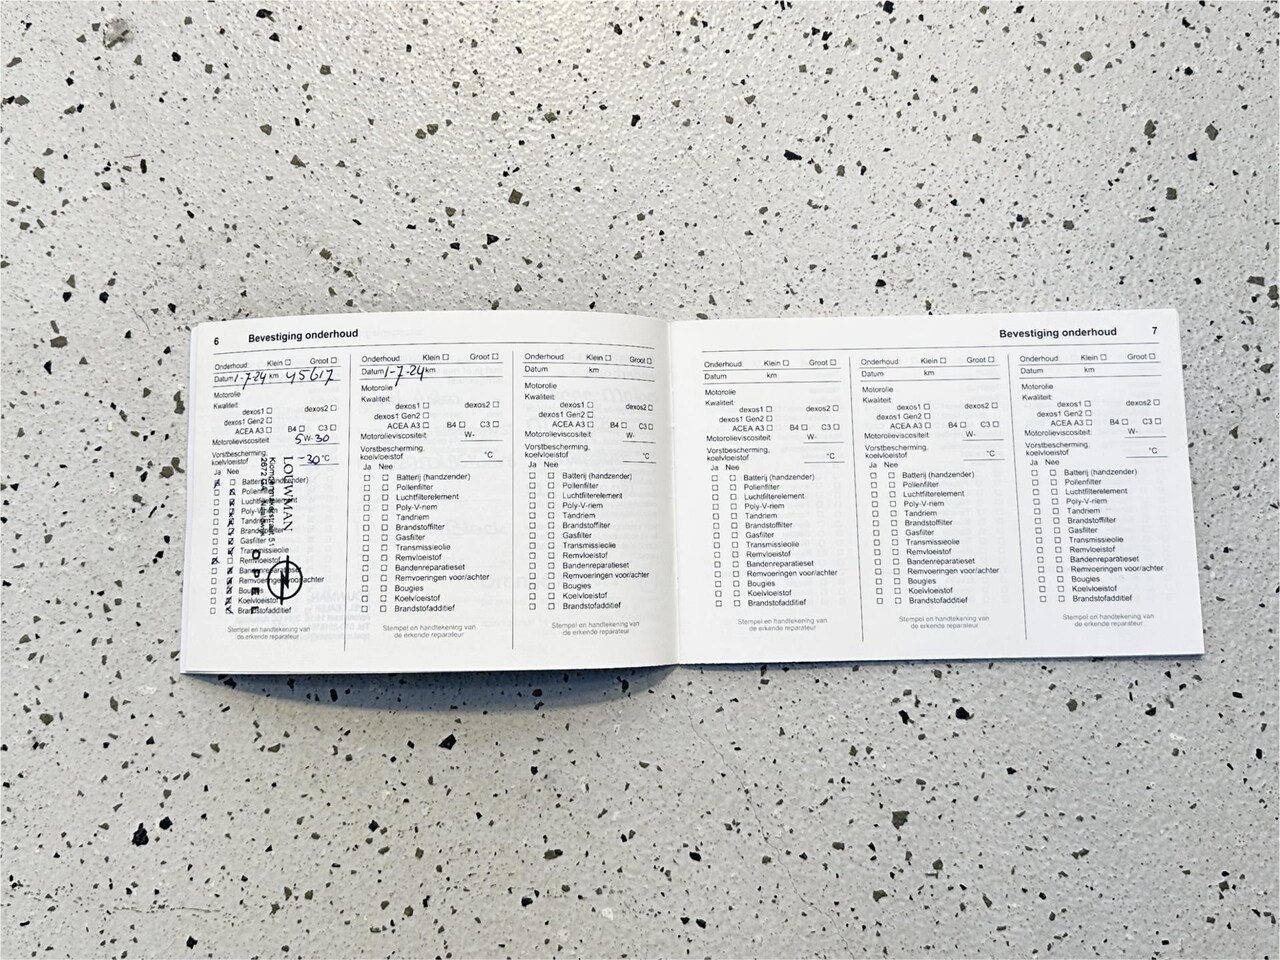 6 Bevestiging onderhoud
Onderhoud Klein ☐ Groot ☐
Datum 1-7-24 km 45617
Motorolie
Kwaliteit:
dexos1 ☐ dexos2 ☐
dexos1 Gen2 ☐
ACEA A3 ☐ B4 ☐ C3 ☐
Motorolieviscositeit: 5 W- 30
Vorstbescherming,
koelvloeistof -30 °C
Ja Nee
Batterij (handzender)
Pollenfilter
Luchtfilterelement
Poly-V-riem
Tandriem
Brandstoffilter
Gasfilter
Transmissieolie
Remvloeistof
Bandenreparatieset
Remvoeringen voor/achter
Bougies
Koelvloeistof
Brandstofadditief
Stempel en handtekening van
de erkende reparateur
LOUWMAN
OPEL
Onderhoud Klein ☐ Groot ☐
Datum 1-7-24 km
Motorolie
Kwaliteit:
dexos1 ☐ dexos2 ☐
dexos1 Gen2 ☐
ACEA A3 ☐ B4 ☐ C3 ☐
Motorolieviscositeit: W-
Vorstbescherming,
koelvloeistof °C
Ja Nee
☐ ☐ Batterij (handzender)
☐ ☐ Pollenfilter
☐ ☐ Luchtfilterelement
☐ ☐ Poly-V-riem
☐ ☐ Tandriem
☐ ☐ Brandstoffilter
☐ ☐ Gasfilter
☐ ☐ Transmissieolie
☐ ☐ Remvloeistof
☐ ☐ Bandenreparatieset
☐ ☐ Remvoeringen voor/achter
☐ ☐ Bougies
☐ ☐ Koelvloeistof
☐ ☐ Brandstofadditief
Stempel en handtekening van
de erkende reparateur
Onderhoud Klein ☐ Groot ☐
Datum km
Motorolie
Kwaliteit:
dexos1 ☐ dexos2 ☐
dexos1 Gen2 ☐
ACEA A3 ☐ B4 ☐ C3 ☐
Motorolieviscositeit: W-
Vorstbescherming,
koelvloeistof °C
Ja Nee
☐ ☐ Batterij (handzender)
☐ ☐ Pollenfilter
☐ ☐ Luchtfilterelement
☐ ☐ Poly-V-riem
☐ ☐ Tandriem
☐ ☐ Brandstoffilter
☐ ☐ Gasfilter
☐ ☐ Transmissieolie
☐ ☐ Remvloeistof
☐ ☐ Bandenreparatieset
☐ ☐ Remvoeringen voor/achter
☐ ☐ Bougies
☐ ☐ Koelvloeistof
☐ ☐ Brandstofadditief
Stempel en handtekening van
de erkende reparateur
Bevestiging onderhoud 7
Onderhoud Klein ☐ Groot ☐
Datum km
Motorolie
Kwaliteit:
dexos1 ☐ dexos2 ☐
dexos1 Gen2 ☐
ACEA A3 ☐ B4 ☐ C3 ☐
Motorolieviscositeit: W-
Vorstbescherming,
koelvloeistof °C
Ja Nee
☐ ☐ Batterij (handzender)
☐ ☐ Pollenfilter
☐ ☐ Luchtfilterelement
☐ ☐ Poly-V-riem
☐ ☐ Tandriem
☐ ☐ Brandstoffilter
☐ ☐ Gasfilter
☐ ☐ Transmissieolie
☐ ☐ Remvloeistof
☐ ☐ Bandenreparatieset
☐ ☐ Remvoeringen voor/achter
☐ ☐ Bougies
☐ ☐ Koelvloeistof
☐ ☐ Brandstofadditief
Stempel en handtekening van
de erkende reparateur
Onderhoud Klein ☐ Groot ☐
Datum km
Motorolie
Kwaliteit:
dexos1 ☐ dexos2 ☐
dexos1 Gen2 ☐
ACEA A3 ☐ B4 ☐ C3 ☐
Motorolieviscositeit: W-
Vorstbescherming,
koelvloeistof °C
Ja Nee
☐ ☐ Batterij (handzender)
☐ ☐ Pollenfilter
☐ ☐ Luchtfilterelement
☐ ☐ Poly-V-riem
☐ ☐ Tandriem
☐ ☐ Brandstoffilter
☐ ☐ Gasfilter
☐ ☐ Transmissieolie
☐ ☐ Remvloeistof
☐ ☐ Bandenreparatieset
☐ ☐ Remvoeringen voor/achter
☐ ☐ Bougies
☐ ☐ Koelvloeistof
☐ ☐ Brandstofadditief
Stempel en handtekening van
de erkende reparateur
Onderhoud Klein ☐ Groot ☐
Datum km
Motorolie
Kwaliteit:
dexos1 ☐ dexos2 ☐
dexos1 Gen2 ☐
ACEA A3 ☐ B4 ☐ C3 ☐
Motorolieviscositeit: W-
Vorstbescherming,
koelvloeistof °C
Ja Nee
☐ ☐ Batterij (handzender)
☐ ☐ Pollenfilter
☐ ☐ Luchtfilterelement
☐ ☐ Poly-V-riem
☐ ☐ Tandriem
☐ ☐ Brandstoffilter
☐ ☐ Gasfilter
☐ ☐ Transmissieolie
☐ ☐ Remvloeistof
☐ ☐ Bandenreparatieset
☐ ☐ Remvoeringen voor/achter
☐ ☐ Bougies
☐ ☐ Koelvloeistof
☐ ☐ Brandstofadditief
Stempel en handtekening van
de erkende reparateur